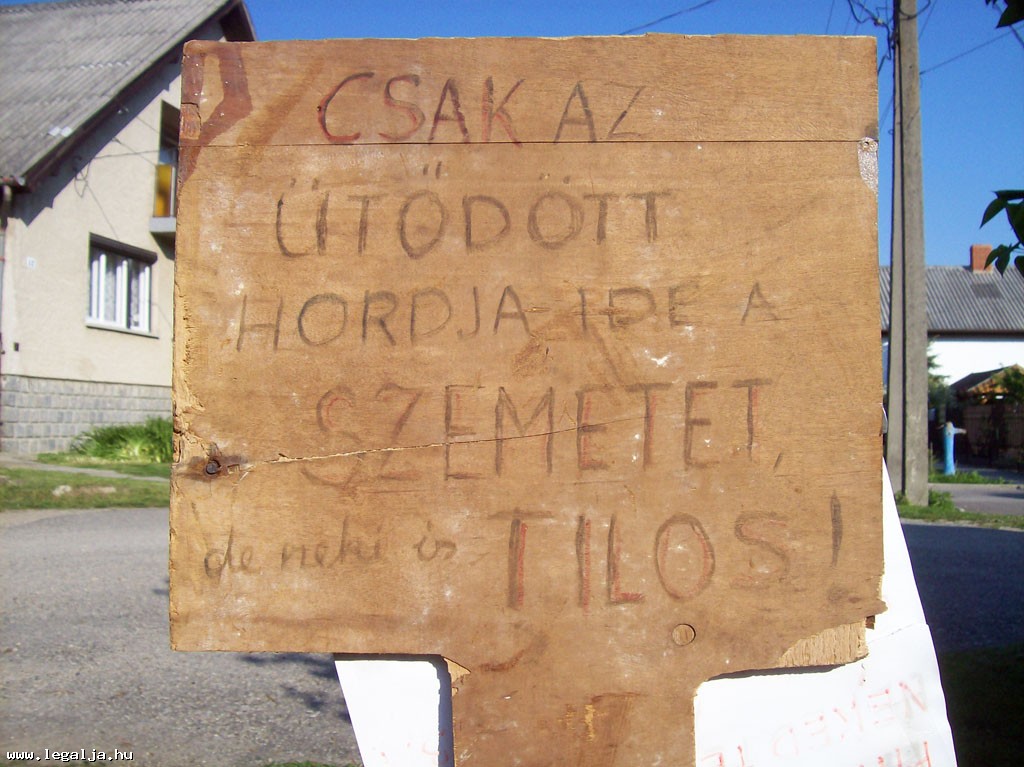 CSAK AZ
ÜTŐDÖTT
HORDJA IDE A
SZEMETET,
de neki is TILOS!
NEKED IS
www.legalja.hu